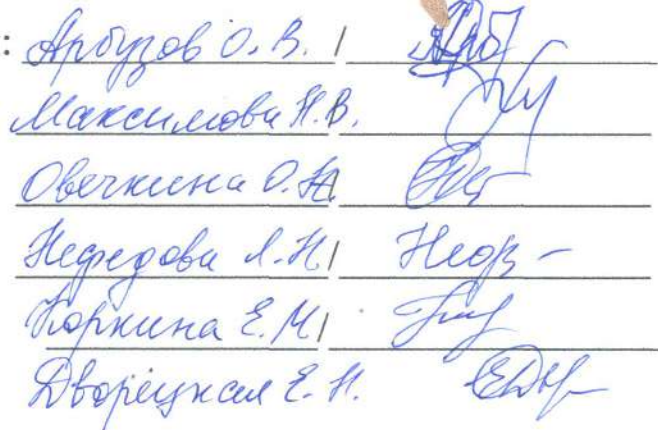 : Арбузов О. В. /
Максимова Н. В.
Овечкина О. Н. /
Нефедова Л. Н /
Коркина Е. М /
Дворецкая Е. Н.